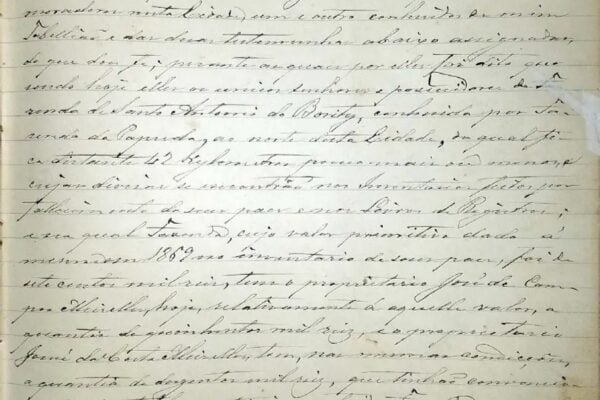 moradores nesta Cidade, um e outro conhecidos de mim
Tabellião e das duas testemunhas abaixo assignadas,
do que dou fé; perante as quaes por elles foi dito que
sendo hoje elles os unicos senhores e possuidores da Fa
zenda de Santo Antonio do Bority, conhecida por Fa-
zenda da Papuda, ao norte desta Cidade, da qual fi
ca distante 42 Kylometros, pouco mais ou menos, e
cujas divisas se encontrão nos Inventarios feitos por
fallecimento de seus paes e nos Livros de Registros;
e na qual Fazenda, cujo valor primitivo dado á
mesma em 1869 no inventario de seu pae, foi de
sete centos mil reis, tem o proprietario José de Cam
pos Meirelles, hoje, relativamente á aquelle valor, a
quantia de quinhentos mil reiz, e o proprietario
José da Costa Meirelles, tem, nas mesmas condicções,
a quantia de duzentos mil reiz, que tinhão convencio